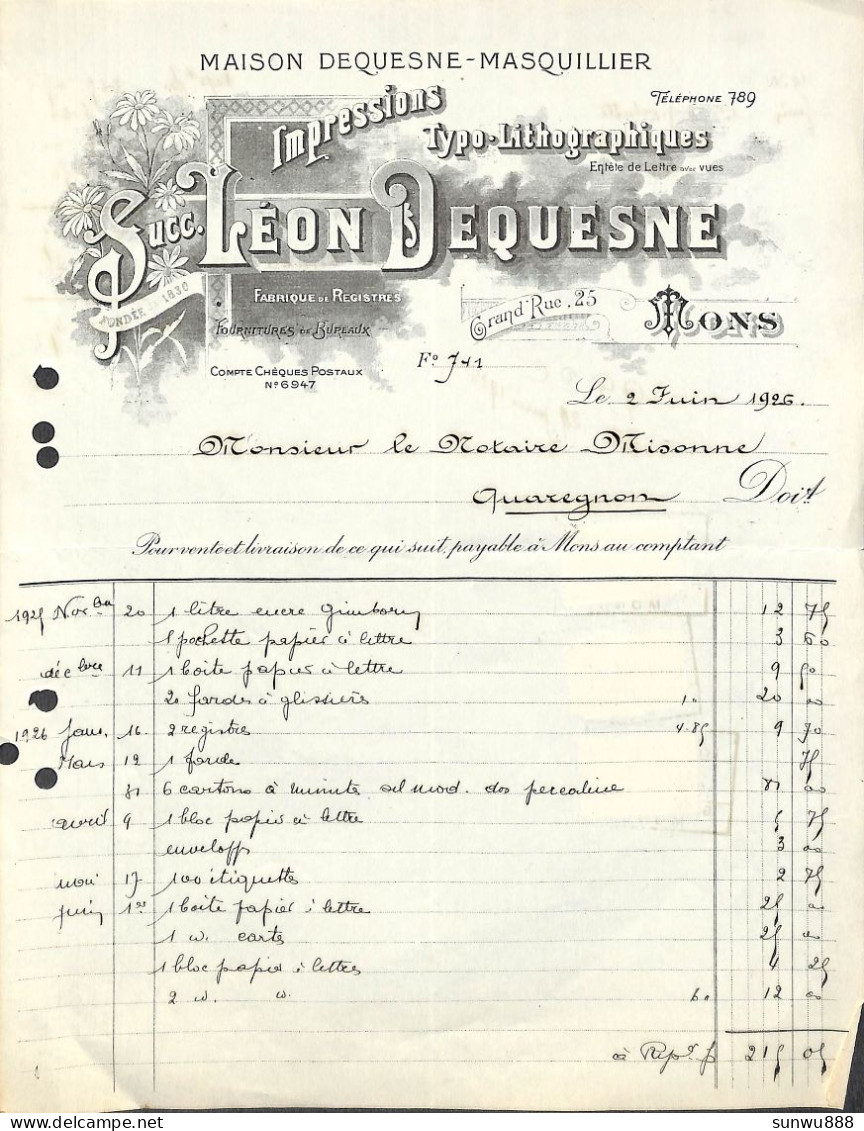 MAISON DEQUESNE-MASQUILLIER
TÉLÉPHONE 789
Impressions
Typo-Lithographiques
Entête de Lettre avec vues
Succ. LÉON DEQUESNE
FONDÉE 1830
FABRIQUE DE REGISTRES
FOURNITURES DE BUREAUX
Grand'Rue. 25
MONS
COMPTE CHÈQUES POSTAUX
No 6947
Fo 741
Le 2 Juin 1926.
Monsieur le Notaire Misonne
Quaregnon Doit
Pour vente et livraison de ce qui suit, payable à Mons au comptant
1925 Novbre 20 1 litre encre Gimborn 12 75
1 pochette papier à lettre 3 60
décbre 11 1 boite papier à lettre 9 50
2 fardes à glissières 10 20 00
1926 Janv. 16 2 registres 4.85 9 70
Mars 12 1 farde 75
31 6 cartons à minute dos percaline 81 00
avril 9 1 bloc papier à lettre 5 75
enveloppes 3 00
mai 17 100 étiquettes 2 75
juin 1er 1 boite papier à lettre 25 00
1 carte 25 00
1 bloc papier à lettres 4 25
2 6 0 12 00
à Rept f 215 05
sunwu888